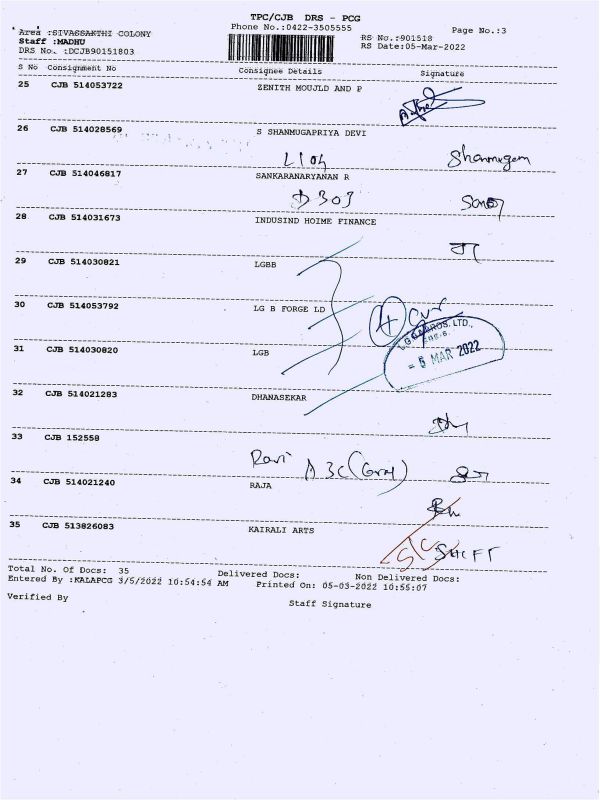 TPC/CJB DRS - PCG
Phone No.:0422-3505555
Page No.:3
Area :SIVASSANTHI COLONY
Staff :MADHU
RS No.:901518
DRS No. :DCJB90151803
RS Date:05-Mar-2022
S No Consignment No Consignee Details Signature
25 CJB 514053722 ZENITH MOUJLD AND P
26 CJB 514028569 S SHANMUGAPRIYA DEVI
Shanmugam
27 CJB 514046817 SANKARANARYANAN R
D303
28 CJB 514031673 INDUSIND HOIME FINANCE
29 CJB 514030821 LGBB
30 CJB 514053792 LG B FORGE LD
4
31 CJB 514030820 LGB
BROS. LTD.,
MAR 2022
32 CJB 514021283 DHANASEKAR
33 CJB 152558
Ravi A3C
34 CJB 514021240 RAJA
35 CJB 513826083 KAIRALI ARTS
S/C SHIFT
Total No. Of Docs: 35 Delivered Docs: Non Delivered Docs:
Entered By :KALAPCG 3/5/2022 10:54:54 AM Printed On: 05-03-2022 10:55:07
Verified By
Staff Signature